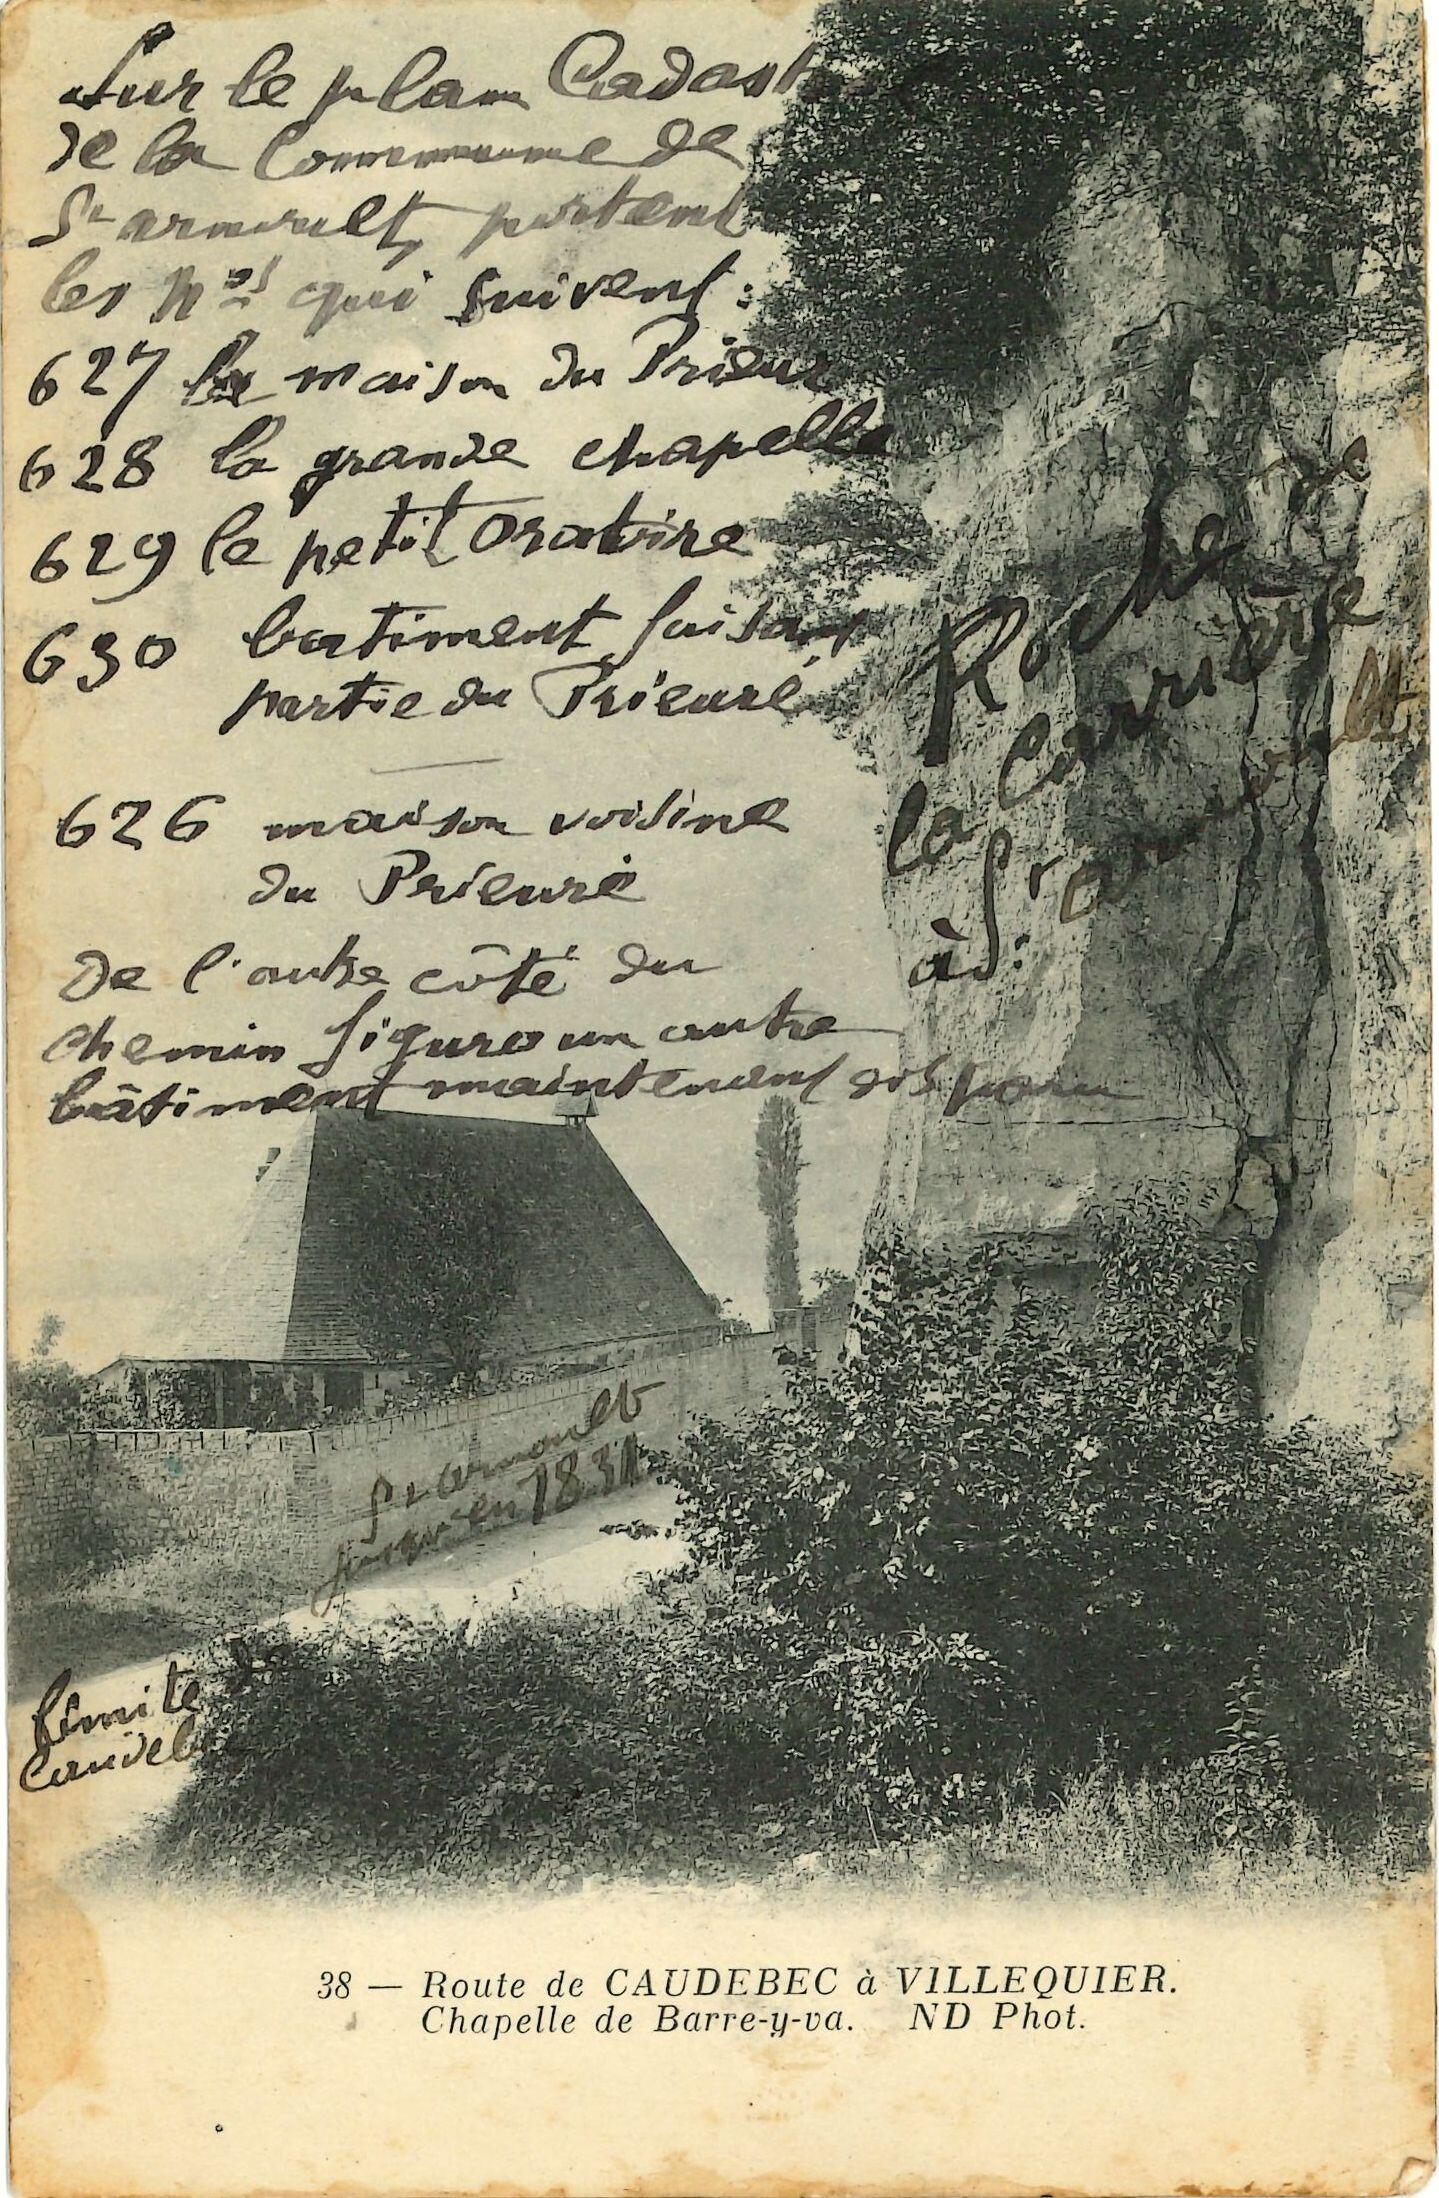 Sur le plan Cadast
de la Commune de
St arnoult, portent
les Nos qui suivent :
627 la maison du Prieur
628 la grande chapelle
629 le petit oratoire
630 batiment faisant
partie du Prieuré
626 maison voisine
du Prieuré
De l'autre côté du
chemin figure un autre
bâtiment maintenant disparu
Roche de
la Carrière
à St arnoult
St Arnoult
jusqu'en 1831
limite de
Caudebec
38 — Route de CAUDEBEC à VILLEQUIER.
Chapelle de Barre-y-va. ND Phot.